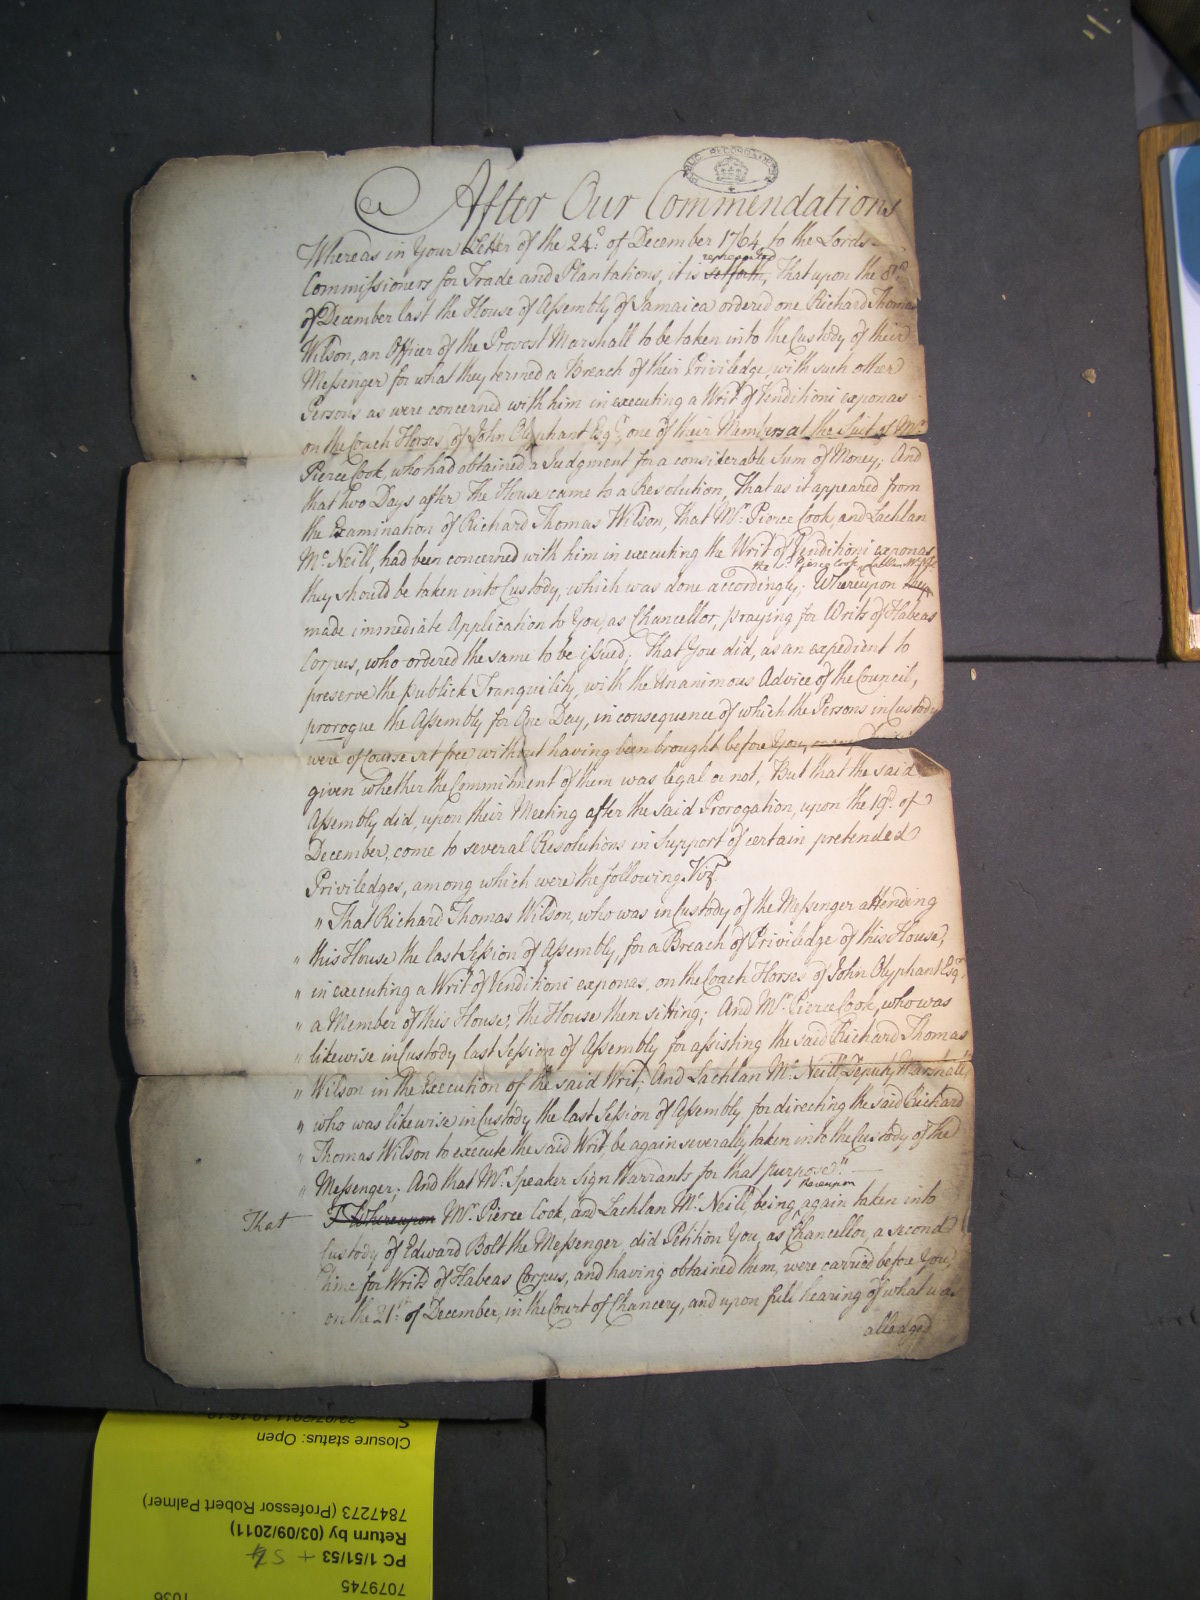 PUBLIC RECORD OFFICE
After Our Commendations
Whereas in Your Letter of the 24.th of December 1764, to the Lords
represented
Commissioners for Trade and Plantations, it is setforth, That upon the 8.th
of December last the House of Assembly of Jamaica ordered one Richard Thomas
Wilson, an Officer of the Provost Marshall to be taken into the Custody of their
Messenger for what they termed a Breach of their Priviledge, with such other
Persons as were concerned with him in executing a Writ of Venditioni exponas
on the Coach Horses, of John Olyphant Esq.r, one of their Members at the Suit of Mr.
Pierce Cook, who had obtained a Judgment for a considerable Sum of Money; And
that two Days after The House came to a Resolution, That as it appeared from
the Examination of Richard Thomas Wilson, that Mr. Pierce Cook, and Lachlan
Mc. Neill, had been concerned with him in executing the Writ of Venditioni exponas
the sd. Pierce Cook, & Lachlan Mc. Neill
they should be taken into Custody, which was done accordingly; Whereupon they
made immediate Application to You, as Chancellor, praying for Writs of Habeas
Corpus, who ordered the same to be issued; That You did, as an expedient to
preserve the publick Tranquility, with the Unanimous Advice of the Council,
prorogue the Assembly for One Day, in consequence of which the Persons in Custody
were of Course set free without having been brought before You,
given whether the Commitment of them was legal or not, But that the said
Assembly did, upon their Meeting after the said Prorogation, upon the 19.th of
December, come to several Resolutions in Support of certain pretended
Priviledges, among which were the following Vizt.
" That Richard Thomas Wilson, who was in Custody of the Messenger attending
" this House the last Session of Assembly, for a Breach of Priviledge of this House,
" in executing a Writ of Venditioni exponas, on the Coach Horses of John Olyphant Esqr.
" a Member of this House, the House then sitting; And Mr. Pierce Cook, who was
" likewise in Custody last Session of Assembly for assisting the said Richard Thomas
" Wilson in the Execution of the said Writ; And Lachlan Mc. Neill, Deputy Marshall,
" who was likewise in Custody the last Session of Assembly for directing the said Richard
" Thomas Wilson to execute the said Writ be again severally taken into the Custody of the
" Messenger; And that Mr. Speaker sign Warrants for that purpose."
thereupon
That Whereupon Mr. Pierce Cook, and Lachlan Mc. Neill, being again taken into
Custody of Edward Bolt the Messenger did Petition You, as Chancellor, a second
Time for Writs of Habeas Corpus, and having obtained them, were carried before You,
on the 21.st of December, in the Court of Chancery, and upon full hearing of what was
alledged
1036
7079745
PC 1/51/53 + 54
Return by (03/09/2011)
7847273 (Professor Robert Palmer)
Closure status: Open